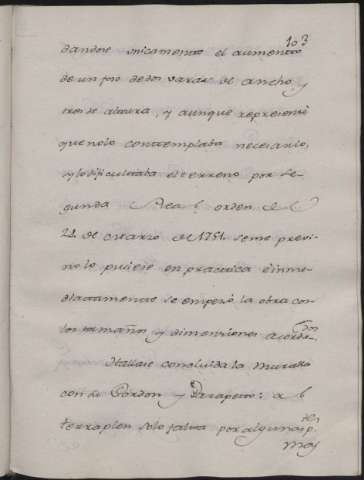 103
dandose unicamente el aumento
de un foso de dos varas de ancho, y
tres de altura, y aunque representé
que no lo contemplaba necesario,
y lo dificultaba el terreno por se-
gunda Real orden de
22 de Marzo de 1751. se me previ-
no lo pusiese en practica è inme-
diatamente se empezó la obra con
los tamaños y dimensiones acorda-
Hallase concluida la muralla
con su Cordon y Parapeto: a el
terraplen solo falta por algunas p.
mas